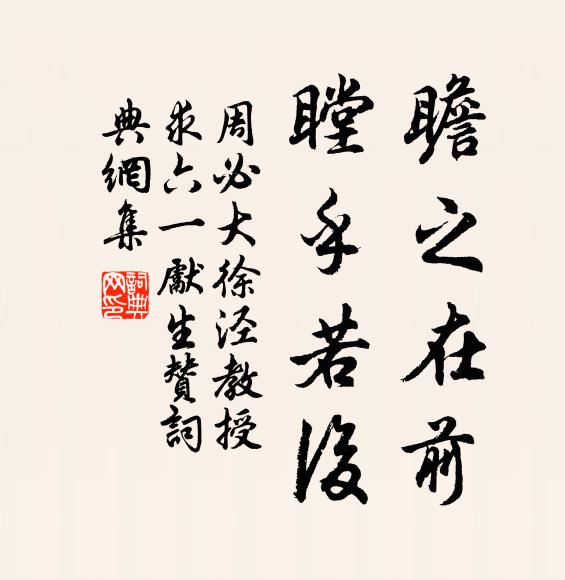 瞻之在前
瞠乎若後
周必大徐泾教授
求六一獻生贊詞
典網集
詞典
网印